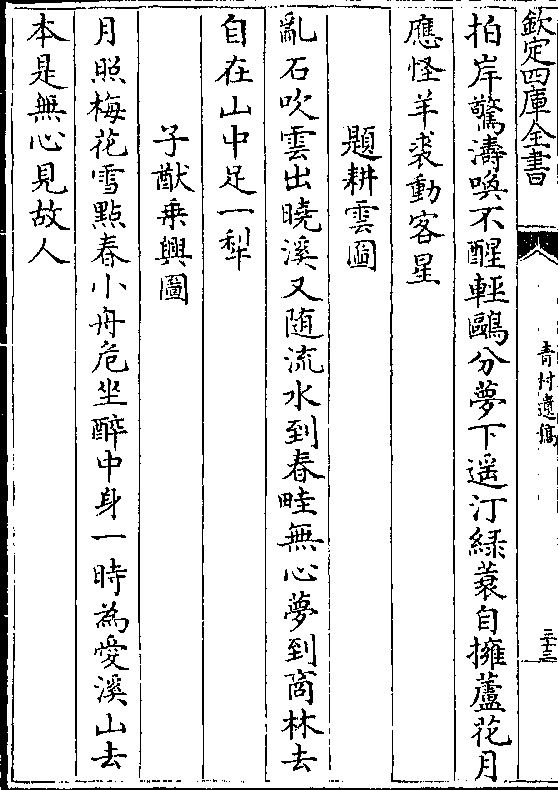 欽定四庫全書
青村遺稿
三十三
拍岸驚濤喚不醒輕鷗分夢下遥汀緑蓑自擁蘆花月
應怪羊裘動客星
題耕雲圖
亂石吹雲出曉溪又隨流水到春畦無心夢到商林去
自在山中足一犂
子猷乘興圖
月照梅花雪點春小舟危坐醉中身一時為愛溪山去
本是無心見故人